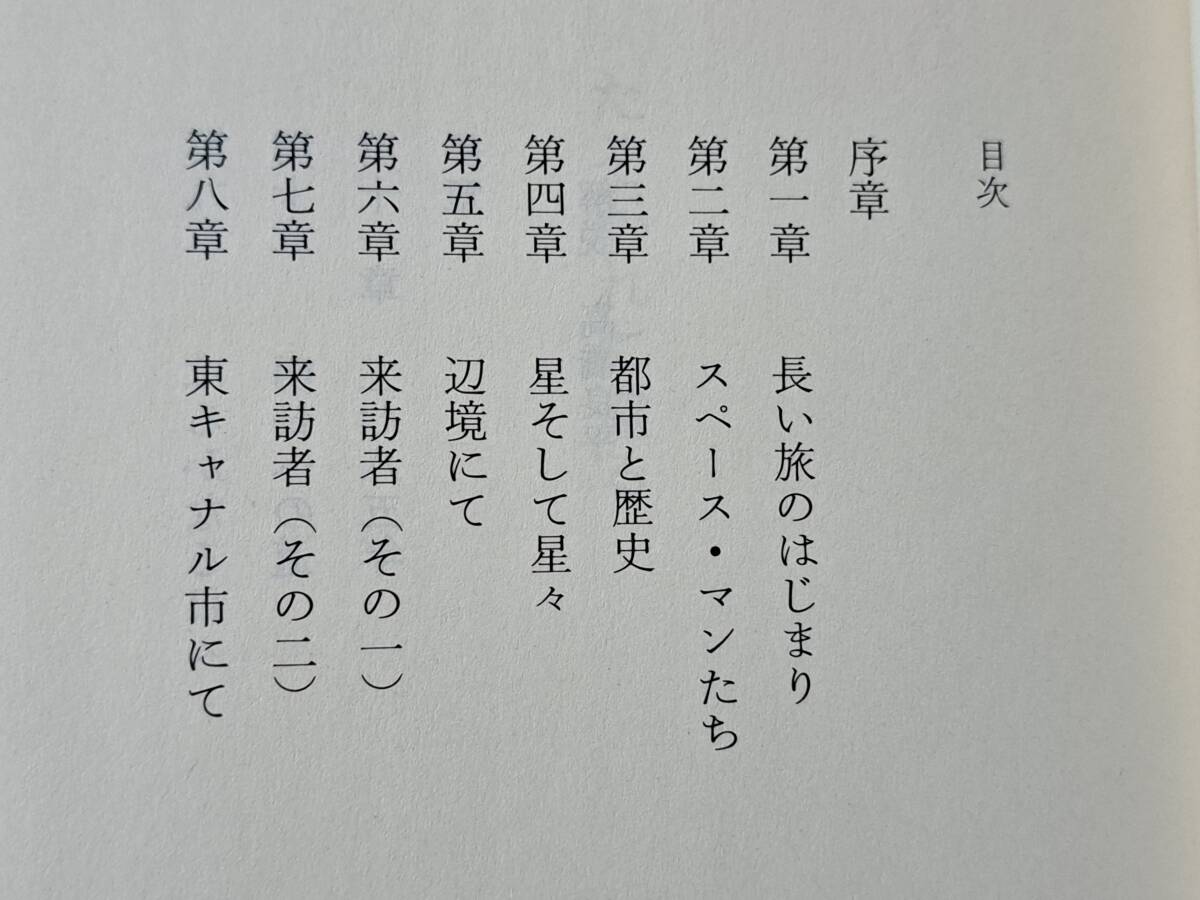 目次
序章
第一章　長い旅のはじまり
第二章　スペース・マンたち
第三章　都市と歴史
第四章　星そして星々
第五章　辺境にて
第六章　来訪者（その一）
第七章　来訪者（その二）
第八章　東キャナル市にて